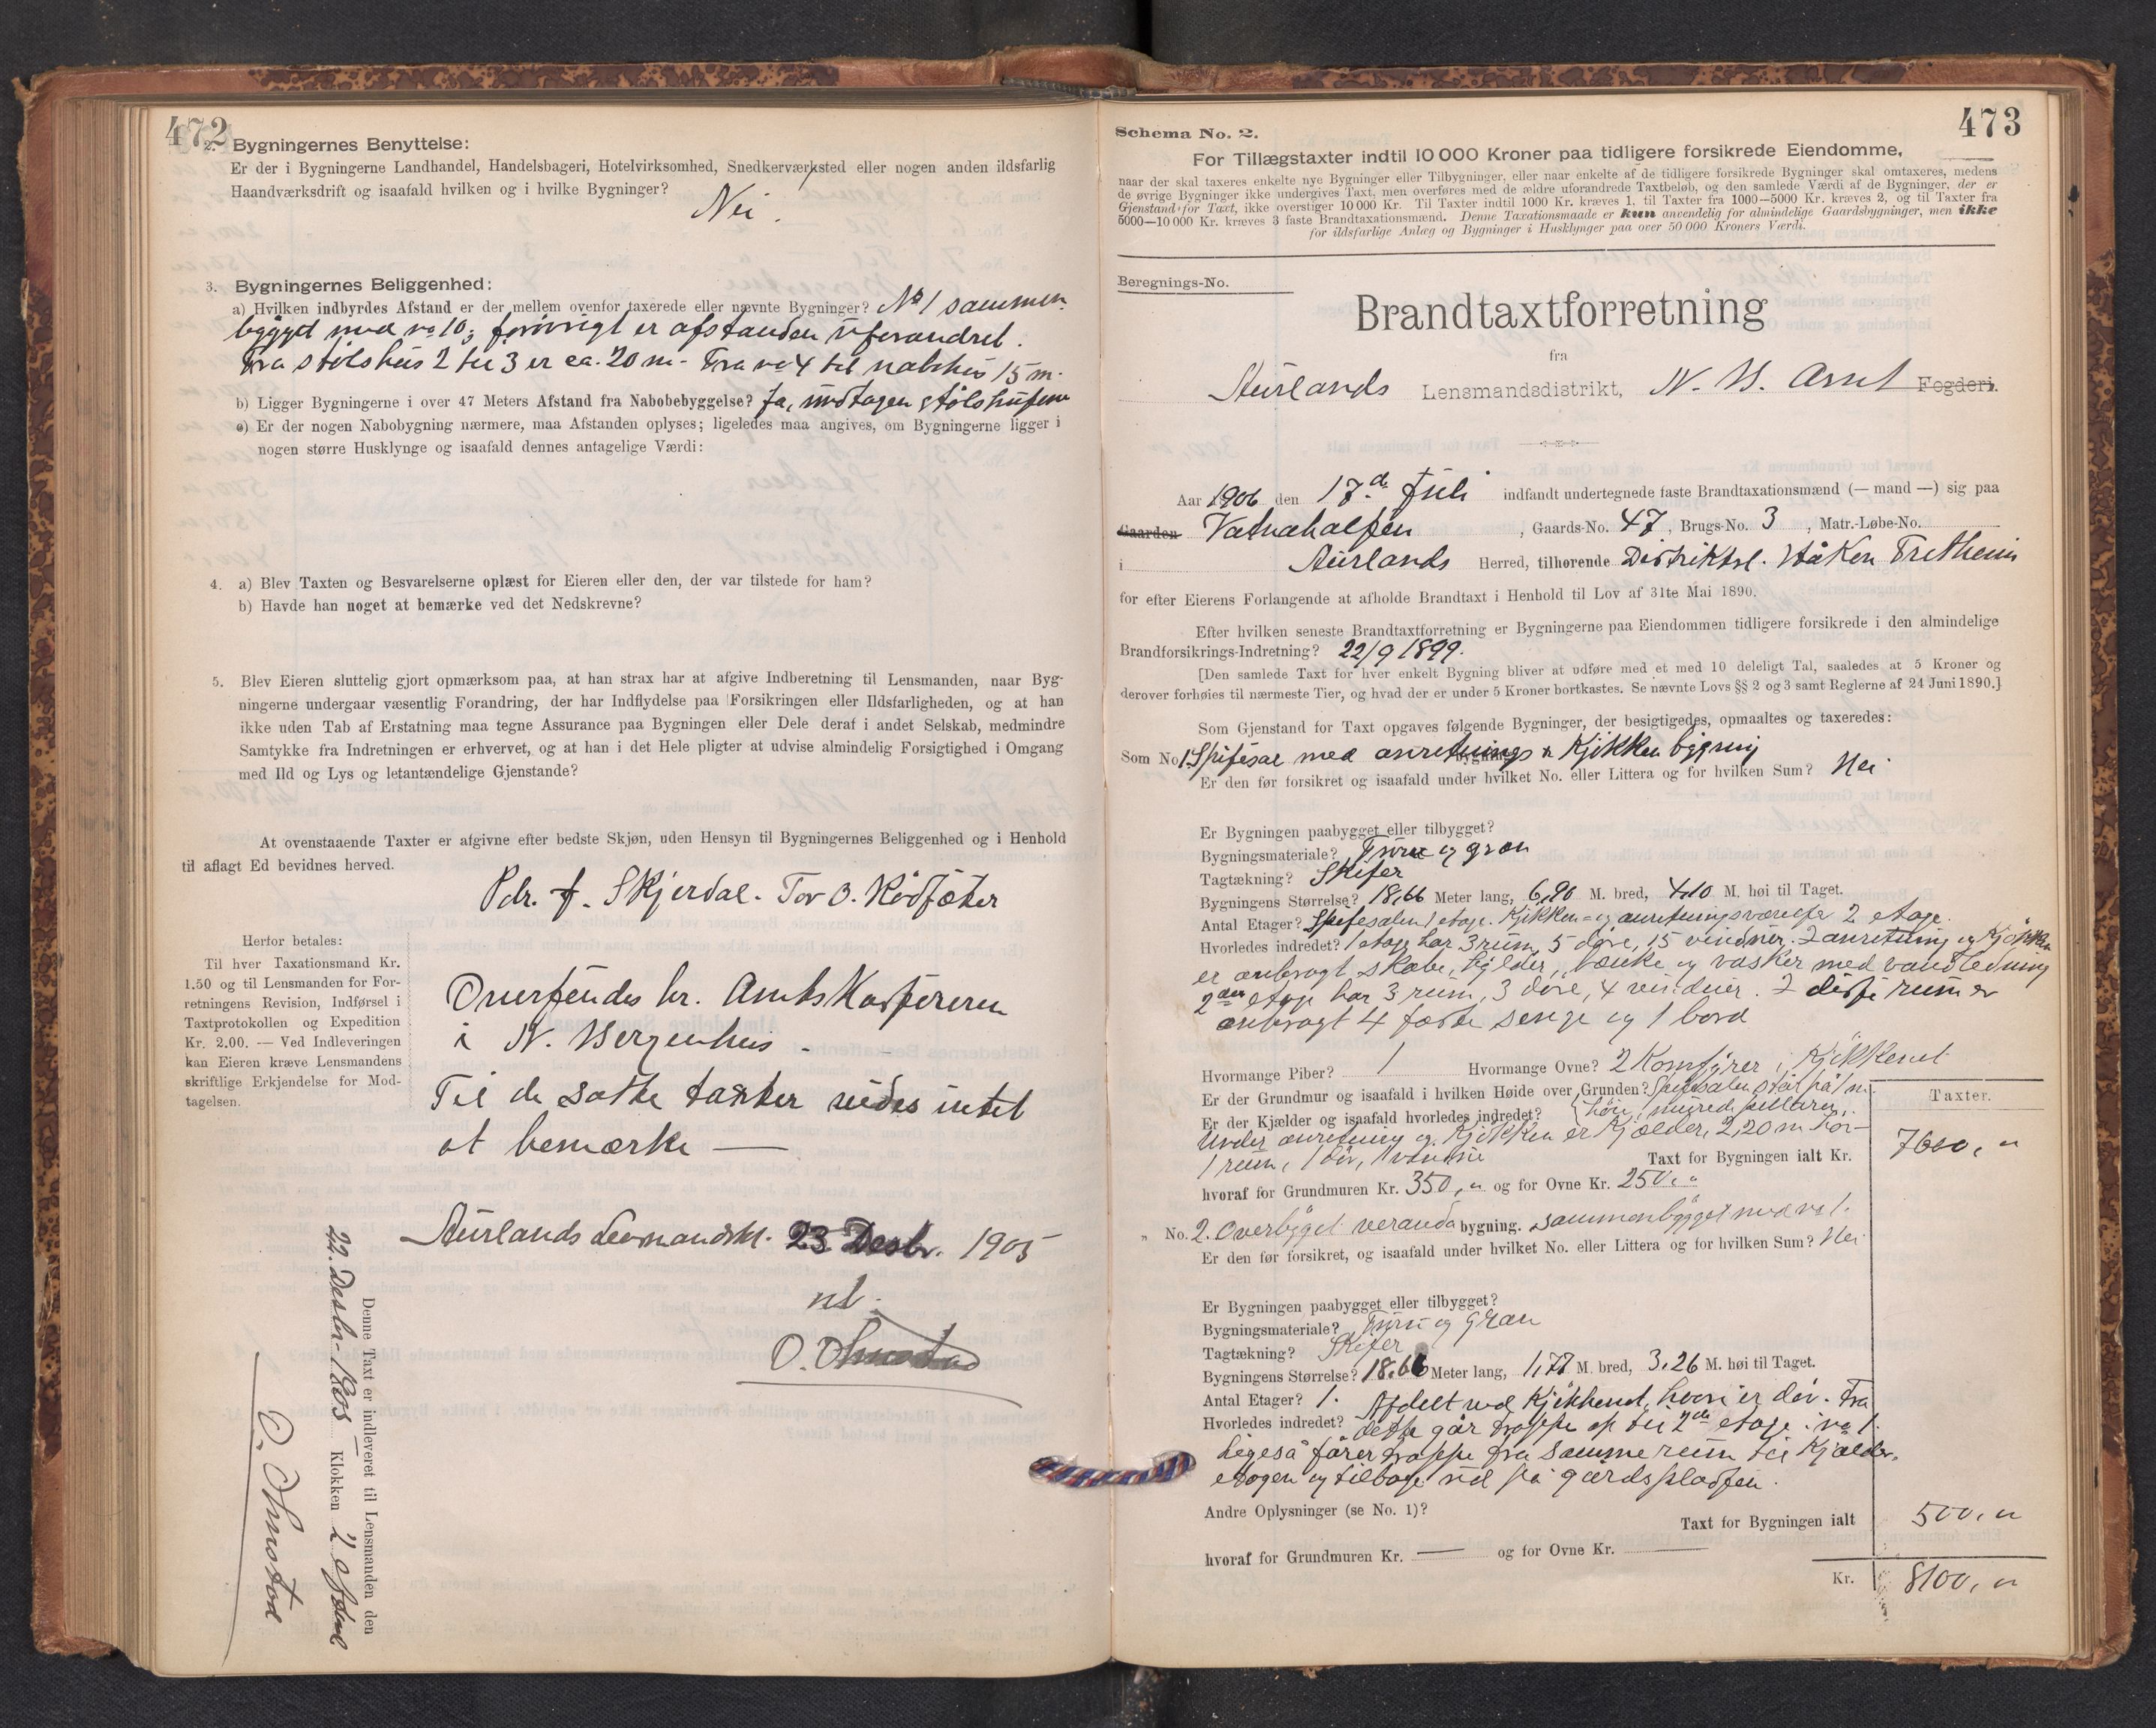 472
2. Bygningernes Benyttelse:
Er der i Bygningerne Landhandel, Handelsbageri, Hotelvirksomhed, Snedkerværksted eller nogen anden ildsfarlig
Haandværksdrift og isaafald hvilken og i hvilke Bygninger?
Nei.
3. Bygningernes Beliggenhed:
a) Hvilken indbyrdes Afstand er der mellem ovenfor taxerede eller nævnte Bygninger? No 1 sammen-
bygget med no 10; forövrigt er afstanden uforandret.
Fra stölshus 2 til 3 er ca. 20 m- Fra no 4 til nabohus 15 m.
b) Ligger Bygningerne i over 47 Meters Afstand fra Nabobebyggelse? Ja, undtagen stölshusene
c) Er der nogen Nabobygning nærmere, maa Afstanden oplyses; ligeledes maa angives, om Bygningerne ligger i
nogen større Husklynge og isaafald dennes antagelige Værdi:
4. a) Blev Taxten og Besvarelserne oplæst for Eieren eller den, der var tilstede for ham?
b) Havde han noget at bemærke ved det Nedskrevne?
5. Blev Eieren sluttelig gjort opmærksom paa, at han strax har at afgive Indberetning til Lensmanden, naar Byg-
ningerne undergaar væsentlig Forandring, der har Indflydelse paa Forsikringen eller Ildsfarligheden, og at han
ikke uden Tab af Erstatning maa tegne Assurance paa Bygningen eller Dele deraf i andet Selskab, medmindre
Samtykke fra Indretningen er erhvervet, og at han i det Hele pligter at udvise almindelig Forsigtighed i Omgang
med Ild og Lys og letantændelige Gjenstande?
At ovenstaaende Taxter er afgivne efter bedste Skjøn, uden Hensyn til Bygningernes Beliggenhed og i Henhold
til aflagt Ed bevidnes herved.
Pdr. J. Skjerdal. Tor O.
Herfor betales:
Til hver Taxationsmand Kr.
1.50 og til Lensmanden for For-
retningens Revision, Indførsel i
Taxtprotokollen og Expedition
Kr. 2.00. — Ved Indleveringen
kan Eieren kræve Lensmandens
skriftlige Erkjendelse for Mod-
tagelsen.
Oversendes hr. Amtskassereren
i N. Bergenhus -
Til de satte takster vides intet
at bemærke —
Aurlands Lensmandskt. 23 Desbr. 1905
O. Ohnstad
Denne Taxt er indleveret til Lensmanden den
22. Desbr. 1905 Klokken 2
O. Ohnstad
473
Schema No. 2.
For Tillægstaxter indtil 10 000 Kroner paa tidligere forsikrede Eiendomme,
naar der skal taxeres enkelte nye Bygninger eller Tilbygninger, eller naar enkelte af de tidligere forsikrede Bygninger skal omtaxeres, medens
de øvrige Bygninger ikke undergives Taxt, men overføres med de ældre uforandrede Taxtbeløb, og den samlede Værdi af de Bygninger, der er
Gjenstand for Taxt, ikke overstiger 10 000 Kr. Til Taxter indtil 1000 Kr. kræves 1, til Taxter fra 1000—5000 Kr. kræves 2, og til Taxter fra
5000—10 000 Kr. kræves 3 faste Brandtaxationsmænd. Denne Taxationsmaade er kun anvendelig for almindelige Gaardsbygninger, men ikke
for ildsfarlige Anlæg og Bygninger i Husklynger paa over 50 000 Kroners Værdi.
Beregnings-No.
Brandtaxtforretning
fra
Aurlands Lensmandsdistrikt, N. B. Amt Fogderi.
Aar 1906 den 17de Juli indfandt undertegnede faste Brandtaxationsmænd (— mand —) sig paa
Gaarden Vatnahalsen, Gaards-No. 47, Brugs-No. 3, Matr.-Løbe-No.
i Aurlands Herred, tilhørende Distriktsl. Håkon Fretheim
for efter Eierens Forlangende at afholde Brandtaxt i Henhold til Lov af 31te Mai 1890.
Efter hvilken seneste Brandtaxtforretning er Bygningerne paa Eiendommen tidligere forsikrede i den almindelige
Brandforsikrings-Indretning? 22/9 1899.
[Den samlede Taxt for hver enkelt Bygning bliver at udføre med et med 10 deleligt Tal, saaledes at 5 Kroner og
derover forhøies til nærmeste Tier, og hvad der er under 5 Kroner bortkastes. Se nævnte Lovs §§ 2 og 3 samt Reglerne af 24 Juni 1890.]
Som Gjenstand for Taxt opgaves følgende Bygninger, der besigtigedes, opmaaltes og taxeredes:
Som No 1. Spisesal med anretnings & Kjökken bygning
Er den før forsikret og isaafald under hvilket No. eller Littera og for hvilken Sum? Nei
Er Bygningen paabygget eller tilbygget?
Bygningsmateriale? Furu og gran
Tagtækning? Skifer
Bygningens Størrelse? 18,66 Meter lang, 6,90 M. bred, 4,10 M. høi til Taget.
Antal Etager? Spisesalen 1 etage. Kjökken- og anretningsværelse 2 etage.
Hvorledes indredet? 1 etage har 3 rum, 5 döre, 15 vinduer. I anretning og Kjökken
er anbragt skabe, hylder, bænke og vasker med vandledning
2den etage har 3 rum, 3 döre, 4 vinduer. I disse rum er
anbragt 4 faste senge og 1 bord
Hvormange Piber? 1 Hvormange Ovne? 2 Komfyrer i Kjökkenet
Er der Grundmur og isaafald i hvilken Høide over Grunden? Spisesalen står på 1 m.
Er der Kjælder og isaafald hvorledes indredet? höie, murede pillarer.
Under anretning og Kjökken er Kjælder, 2,20 m hör-
1 rum, 1 dör, 1 vindue Taxt for Bygningen ialt Kr.
Taxter.
7600, "
hvoraf for Grundmuren Kr. 350, " og for Ovne Kr. 250, "
" No. 2. Overbygget veranda bygning. sammenbygget med no 1.
Er den før forsikret, og isaafald under hvilket No. eller Littera og for hvilken Sum? Nei
Er Bygningen paabygget eller tilbygget?
Bygningsmateriale? Furu og Gran
Tagtækning? Skifer
Bygningens Størrelse? 18.66 Meter lang, 1,77 M. bred, 3,26 M. høi til Taget.
Antal Etager? 1. Afdelt ved Kjökkenet, hvori er dör. Fra
Hvorledes indredet? dette går trappe op til 2den etage i no 1.
Ligeså förer trappe fra samme rum til Kjælder-
etagen og tilbage ud på gårdspladsen.
Andre Oplysninger (se No. 1)?
Taxt for Bygningen ialt 500, "
hvoraf for Grundmuren Kr. — og for Ovne Kr. —
Kr. 8100, "